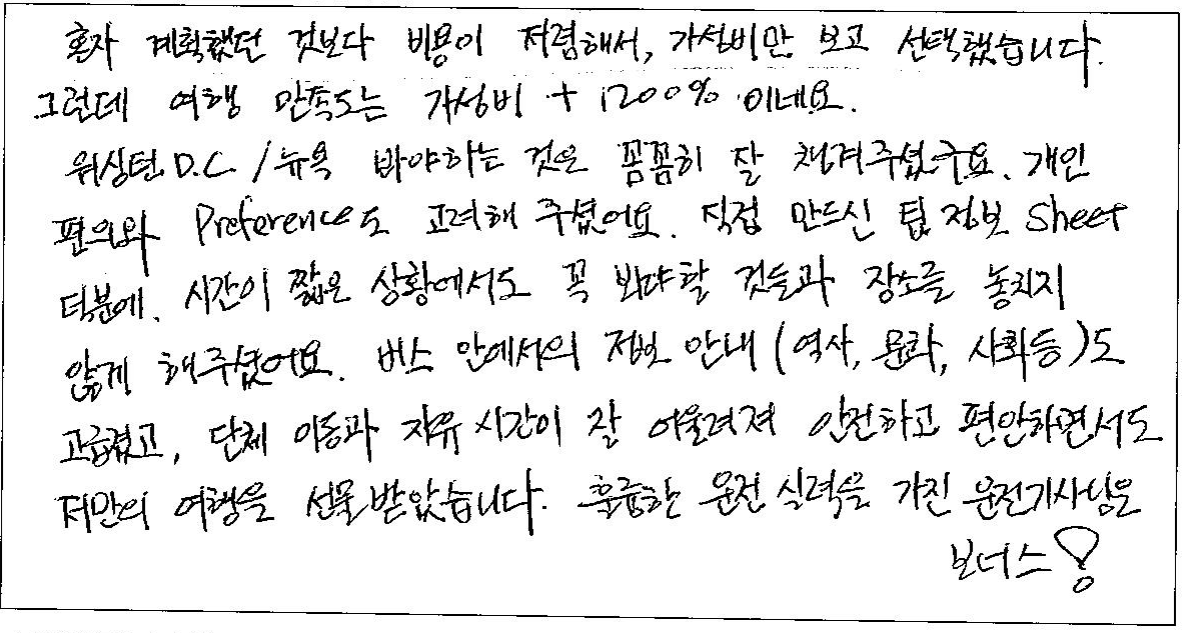 혼자 계획했던 것보다 비용이 저렴해서, 가성비만 보고 선택했습니다.
그런데 여행 만족도는 가성비 + 1200% 이네요.
워싱턴D.C. / 뉴욕 봐야하는 것은 꼼꼼히 잘 챙겨주셨구요. 개인
편의와 Preference도 고려해 주셨어요. 직접 만드신 팁 정보 Sheet
덕분에. 시간이 짧은 상황에서도 꼭 봐야할 것들과 장소를 놓치지
않게 해주셨어요. 버스 안에서의 정보 안내 (역사, 문화, 사회등)도
고급졌고, 단체 이동과 자유 시간이 잘 어울려져 안전하고 편안하면서도
저만의 여행을 선물받았습니다. 훌륭한 운전 실력을 가진 운전기사님은
보너스!